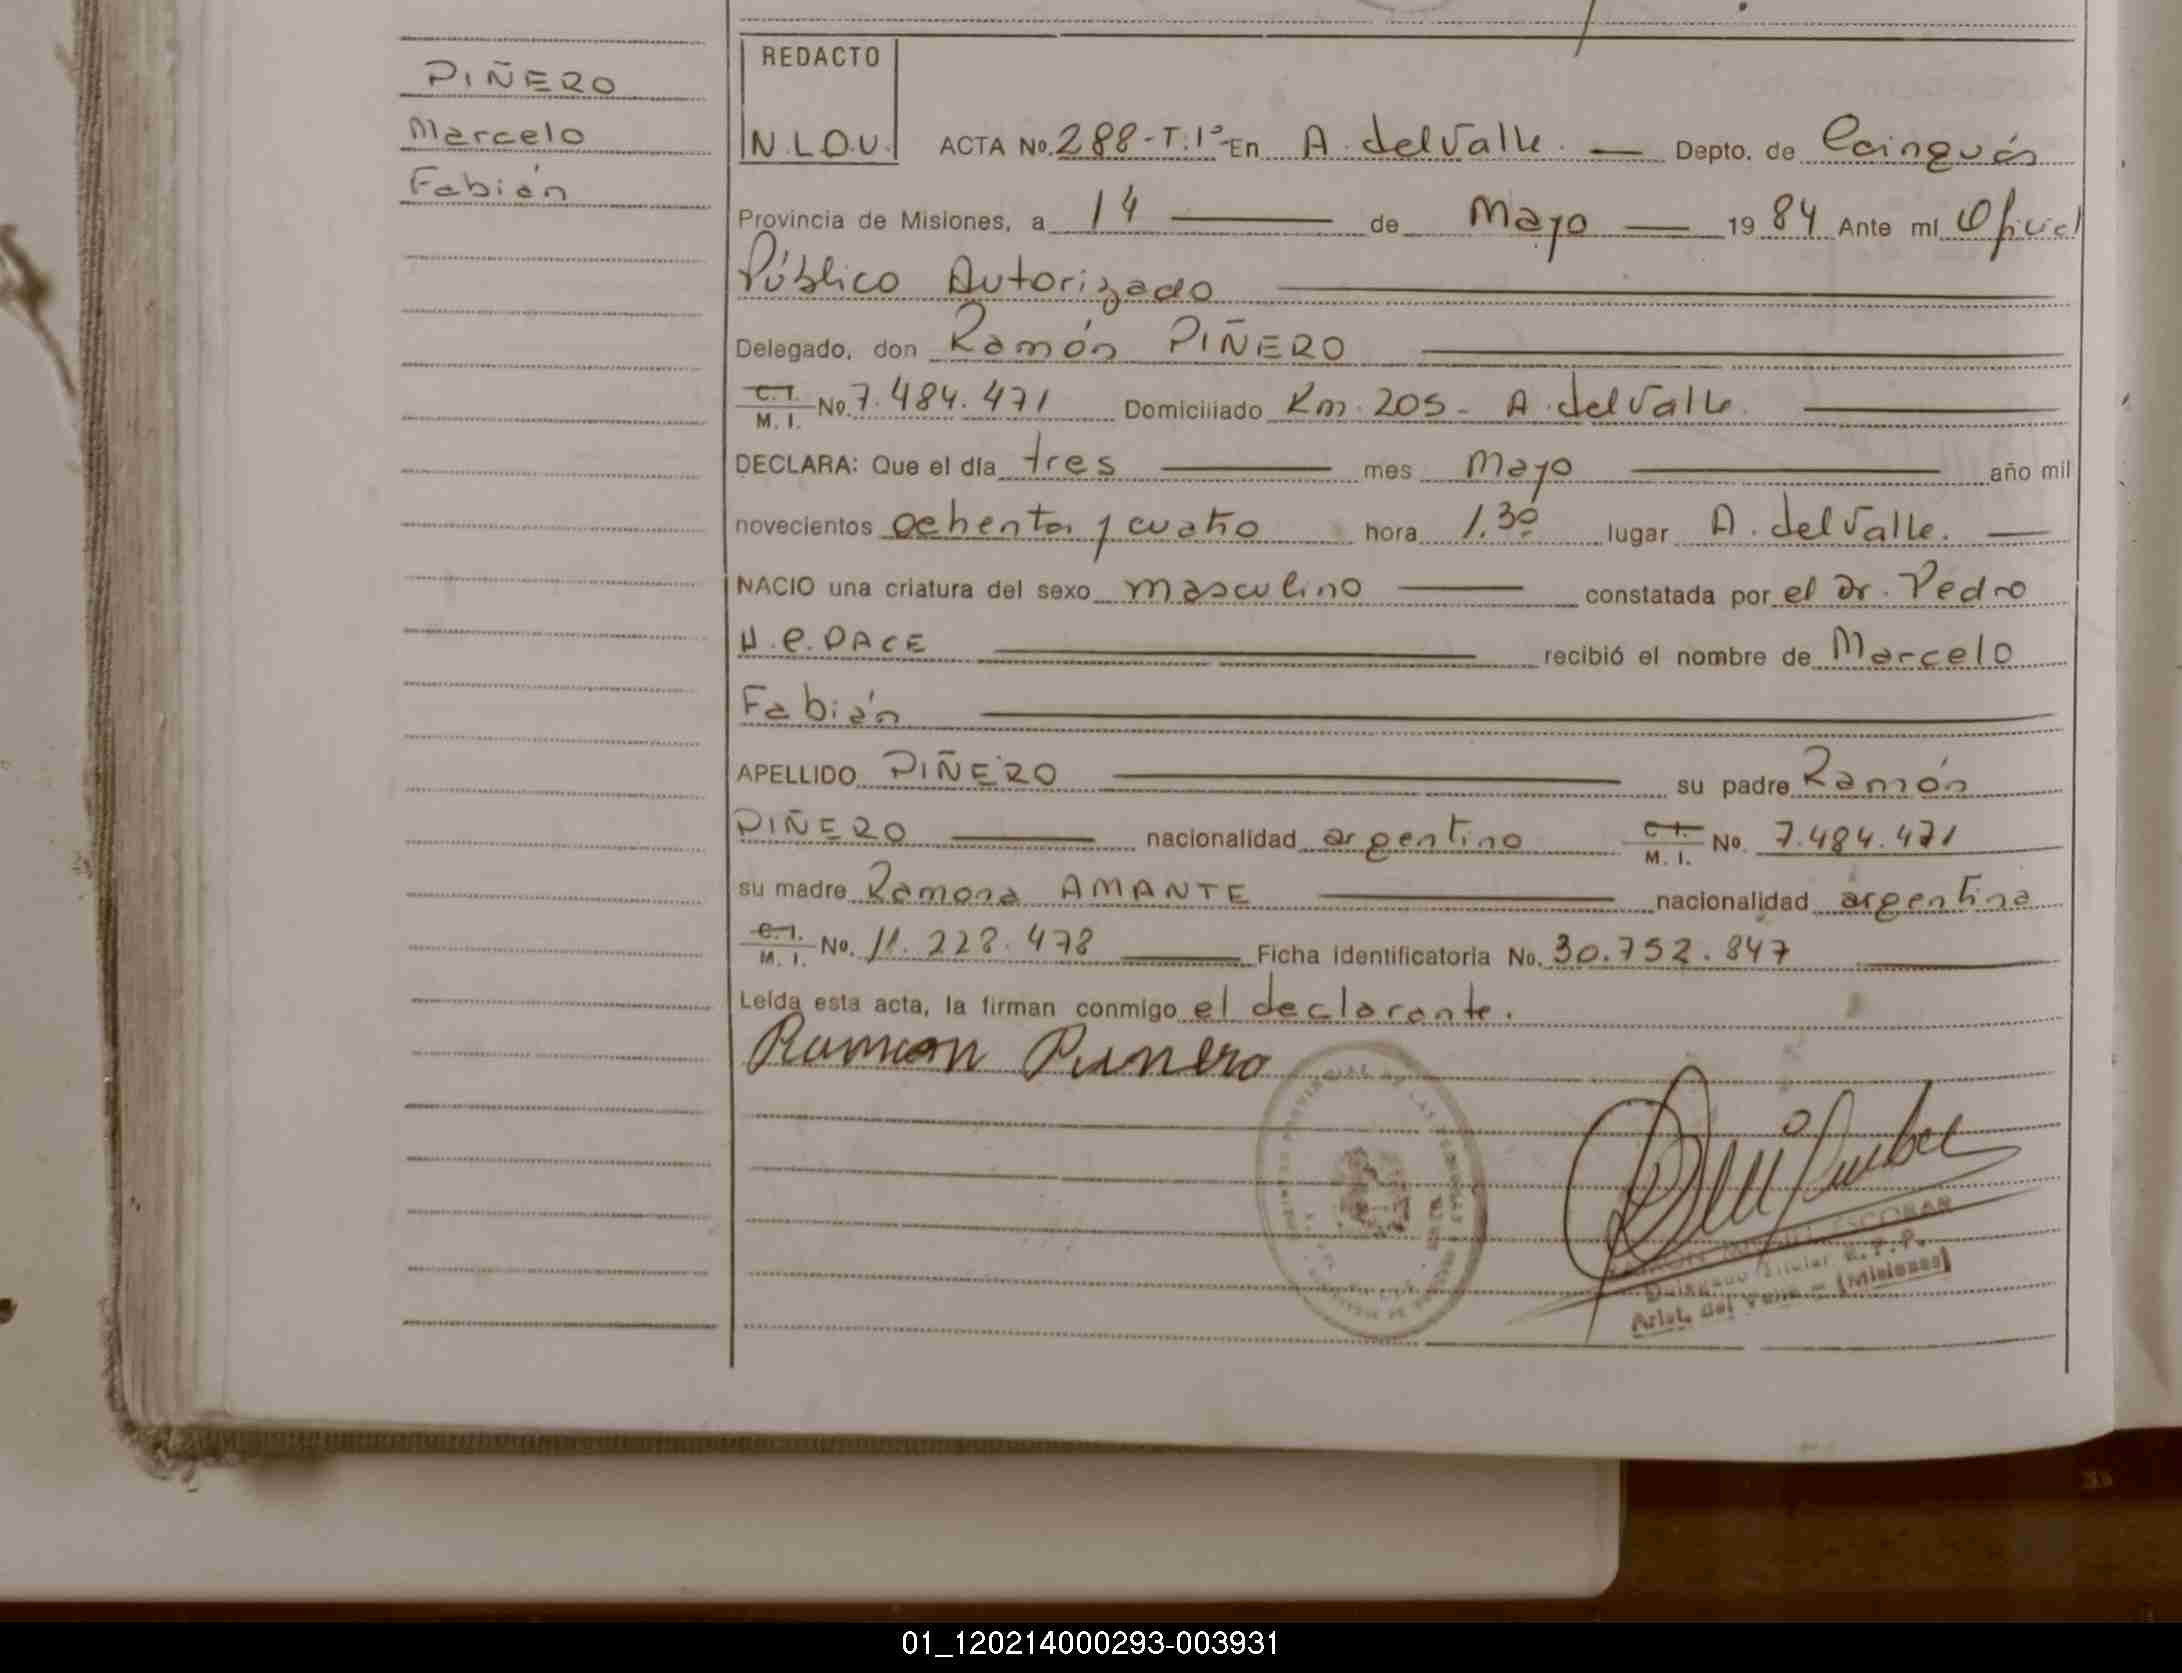 PIÑERO
Marcelo
Fabián
REDACTO
N.L.O.V.
ACTA No. 288-T.1º En A. del Valle. — Depto. de Cainguás
Provincia de Misiones, a 14 — de Mayo — 19 84 Ante mi Oficial
Público Autorizado
Delegado, don Ramón PIÑERO
C.I. M. I. No. 7.484.471 Domiciliado Km. 205 - A. del Valle.
DECLARA: Que el día tres — mes Mayo — año mil
novecientos ochenta y cuatro hora 1.30 lugar A. del Valle. —
NACIO una criatura del sexo masculino — constatada por el Dr. Pedro
H. C. PACE — recibió el nombre de Marcelo
Fabián
APELLIDO PIÑERO — su padre Ramón
PIÑERO — nacionalidad argentino C.I. M. I. No. 7.484.471
su madre Ramona AMANTE — nacionalidad argentina
C.I. M. I. No. 11.228.478 — Ficha identificatoria No. 30.752.847
Leída esta acta, la firman conmigo el declarante.
Ramon Pinero
ESCOBAR
Delegado Titular R. P. P.
Arist. del Valle - (Misiones)
01_120214000293-003931